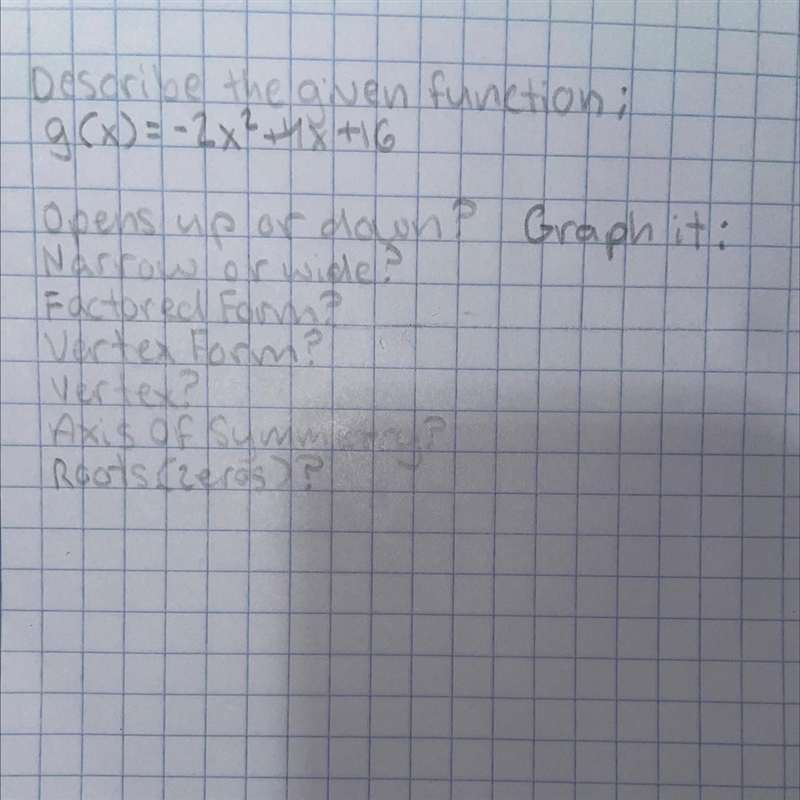 Describe the given function;
g(x) = -2x² + 4x + 16
Opens up or down? Graph it:
Narrow or wide?
Factored Form?
Vertex Form?
Vertex?
Axis Of Symmetry?
Roots (zeros)?